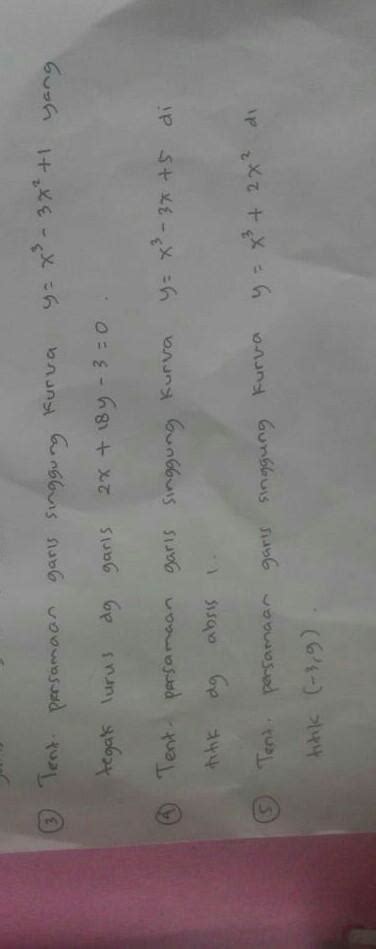 ③ Tent. persamaan garis singgung kurva y = x³ - 3x² + 1 yang
tegak lurus dg garis 2x + 18y - 3 = 0.
④ Tent. persamaan garis singgung kurva y = x³ - 3x + 5 di
titik dg absis 1.
⑤ Tent. persamaan garis singgung kurva y = x³ + 2x² di
titik (-3,9).